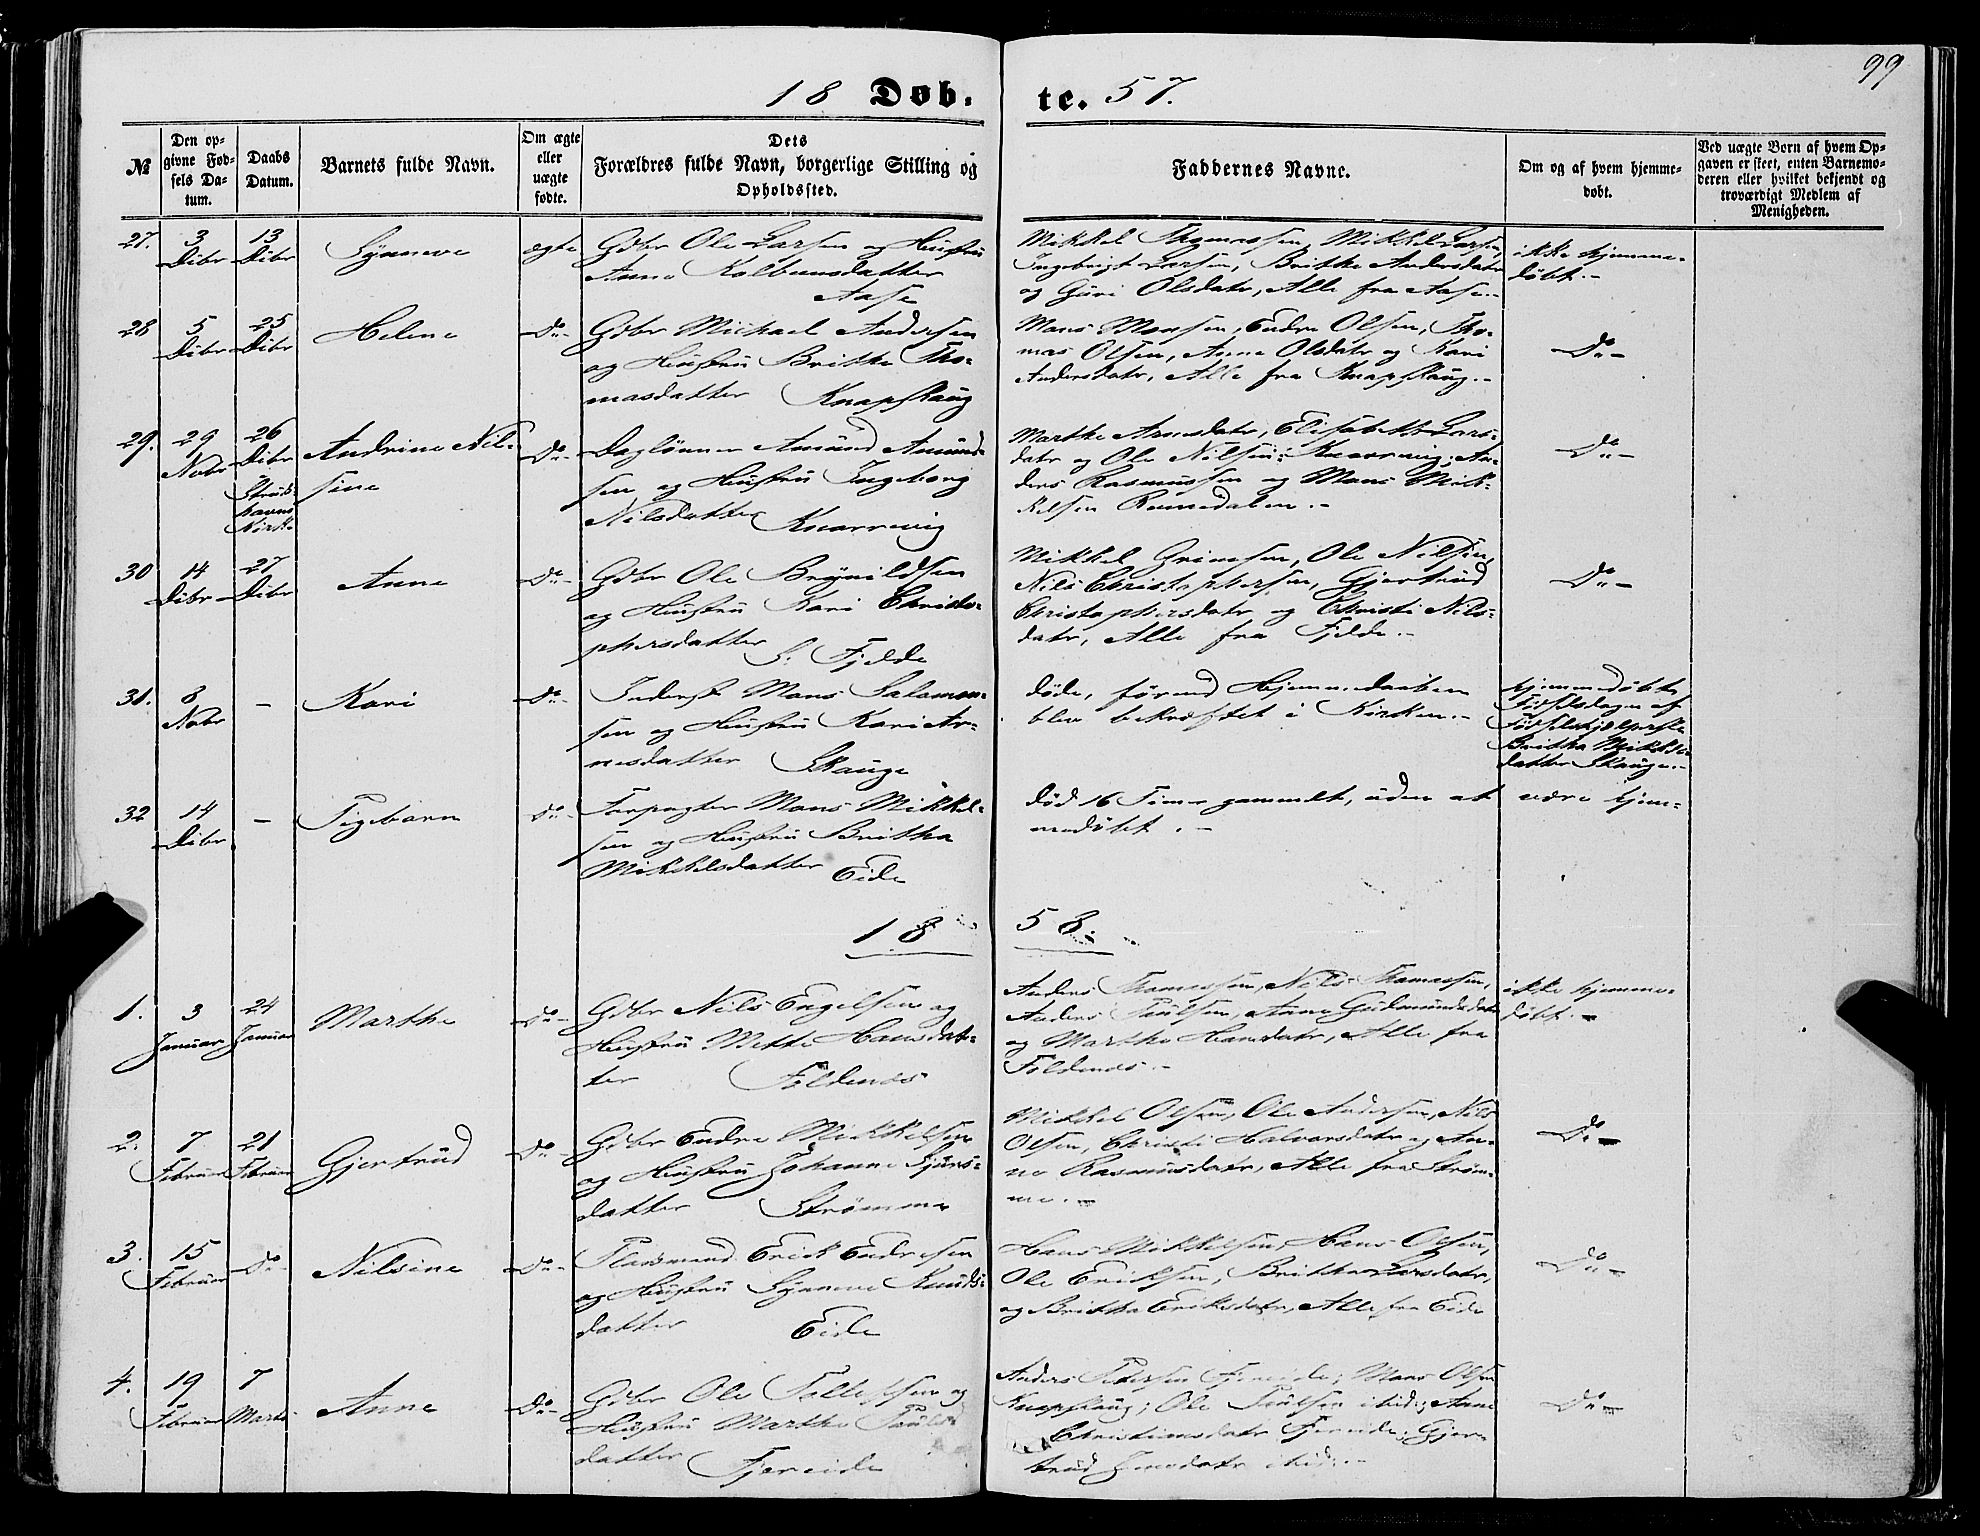 99
18 Døb. te. 57.
№
Den op-
givne Fød-
sels Da-
tum.
Daabs
Datum.
Barnets fulde Navn.
Om ægte
eller
uægte
fødte.
Dets
Forældres fulde Navn, borgerlige Stilling og
Opholdssted.
Faddernes Navne.
Om og af hvem hjemme-
døbt.
Ved uægte Børn af hvem Op-
gaven er skeet, enten Barnemo-
deren eller hvilket bekjendt og
troværdigt Medlem af
Menigheden.
27.
3
Dcbr
13
Dcbr
Synneve
ægte
Gdbr Ole Larsen og Hustru
Anna Kolbensdatter
Aase
Mikkel Thomassen, Mikkel Larsen,
Ingebrigt Larsen, Britha Andersdatr
og Guri Olsdatr, Alle fra Aase.-
ikke hjemme-
døbt.-
28
5
Dcbr
25
Dcbr
Helene
Do-
Gdbr Michael Andersen
og Hustru Britha Tho-
masdatter Knapskaug
Mons Monsen, Endre Olsen, Tho-
mas Olsen, Anne Olsdatr og Kari
Andersdatr, Alle fra Knapskaug.-
Do-
29.
29
Novbr
26
Dcbr
Struds-
havns
Kirke
Andrine Nil-
sine
Do-
Daglønner Amund Amund-
sen og Hustru Ingeborg
Nilsdatter Knarrevig
Marthe Arnesdatr, Elisabeth Lars-
datr og Ole Nilsen: Knarrevig; An-
ders Rasmussen og Mons Mik-
kelsen Ramsdalen.-
Do-
30
14
Dcbr
27
Dcbr
Anne
Do-
Gdbr Ole Brynildsen
og Hustru Kari Christo-
phersdatter S: Fjelde
Mikkel Grimsen, Ole Nilsen,
Nils Christophersen, Gjertrud
Christophersdatr og Christi Nils-
datr, Alle fra Fjelde.-
Do-
31.
8
Novbr
-
Kari
Do-
Inderst Mons Salamon-
sen og Hustru Kari Ar-
nesdatter Skauge
døde, førend Hjemmedaaben
blev bekræftet i Kirken.-
hjemmedøbt
Fødselsdagen af
Fødselshjælperske
Britha Mikkels-
datter Skauge.-
32
14
Dcbr
-
Pigebarn
Do-
Forpagter Mons Mikkel-
sen og Hustru Britha
Mikkelsdatter Eide
død 16 Timer gammelt, uden at være hjem-
medøbt.-
18 58.
1.
3
Januar
24
Januar
Marthe
Do-
Gdbr Nils Engelsen og
Hustru Mette Hansdat-
ter Foldnæs
Anders Thomassen, Nils Thomassen,
Anders Poulsen, Anne Gudmundsdatr
og Marthe Hansdatr, Alle fra
Foldnæs.-
ikke hjemme-
døbt.-
2.
7
Februar
21
Februar
Gjertrud
Do-
Gdbr Endre Mikkelsen
og Hustru Johanne Sjurs-
datter Strømme
Mikkel Olsen, Ole Andersen, Nils
Olsen, Christi Halvorsdatr og An-
ne Rasmusdatr, Alle fra Strøm-
me.-
Do-
3.
15
Februar
Do-
Nilsine
Do-
Pladsmand Erick Endresen
og Hustru Synneve Knuds-
datter Eide
Hans Mikkelsen, Hans Olsen,
Ole Ericksen, Britha Larsdatr,
og Britha Eriksdatr, Alle fra Eide
Do-
4.
19
Februar
7
Marts
Anne
Do-
Gdbr Ole Tollefsen og
Hustru Marthe Pouls-
datter Fjereide
Anders Pedersen Fjereide; Mons Olsen
Knapskaug; Ole Poulsen ibid; Anne
Christiansdatr Fjereide; Gjer-
trud Jensdatr ibid.-
Do-